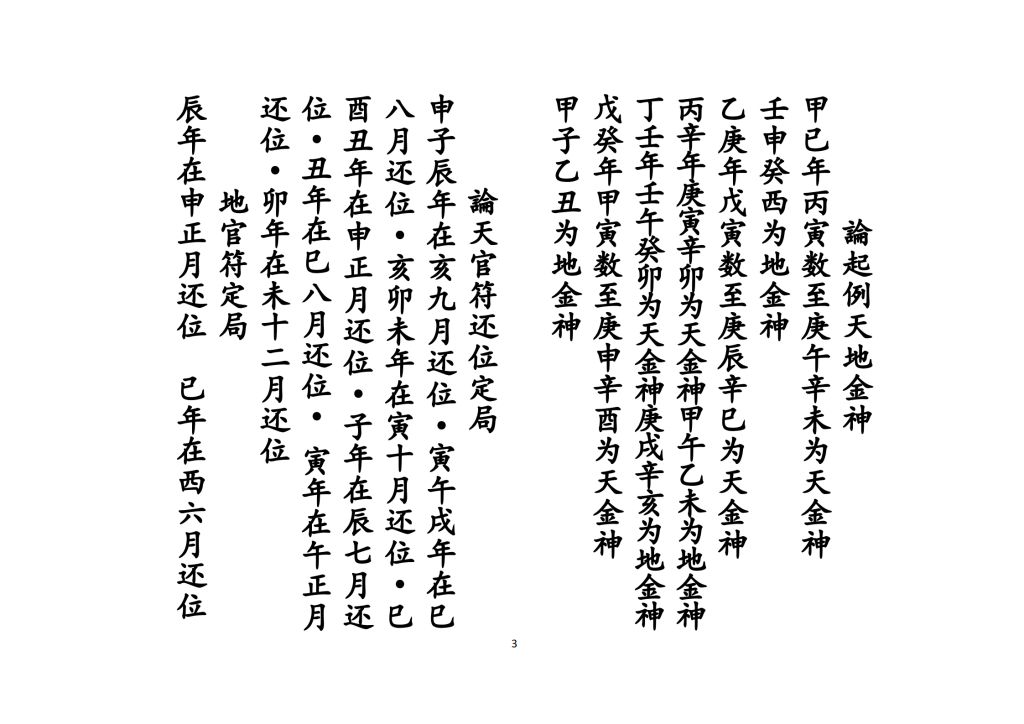 論起例天地金神
甲已年丙寅数至庚午辛未为天金神
壬申癸西为地金神
乙庚年戊寅数至庚辰辛巳为天金神
丙辛年庚寅辛卯为天金神甲午乙未为地金神
丁壬年壬午癸卯为天金神庚戌辛亥为地金神
戊癸年甲寅数至庚申辛酉为天金神
甲子乙丑为地金神
論天官符还位定局
申子辰年在亥九月还位•寅午戌年在巳
八月还位•亥卯未年在寅十月还位•巳
酉丑年在申正月还位•子年在辰七月还
位•丑年在巳八月还位• 寅年在午正月
还位•卯年在未十二月还位
地官符定局
辰年在申正月还位 巳年在西六月还位
3